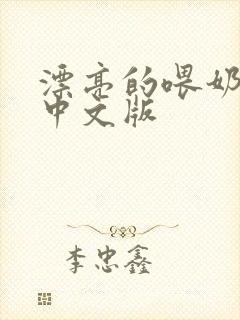 漂亮的喂奶
中文版
李忠鑫